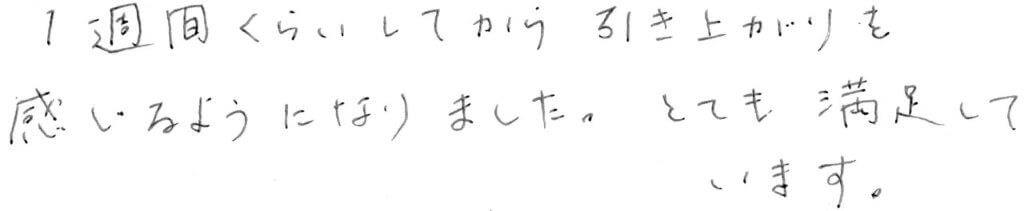 1週間くらいしてから引き上がりを
感じるようになりました。とても満足して
います。